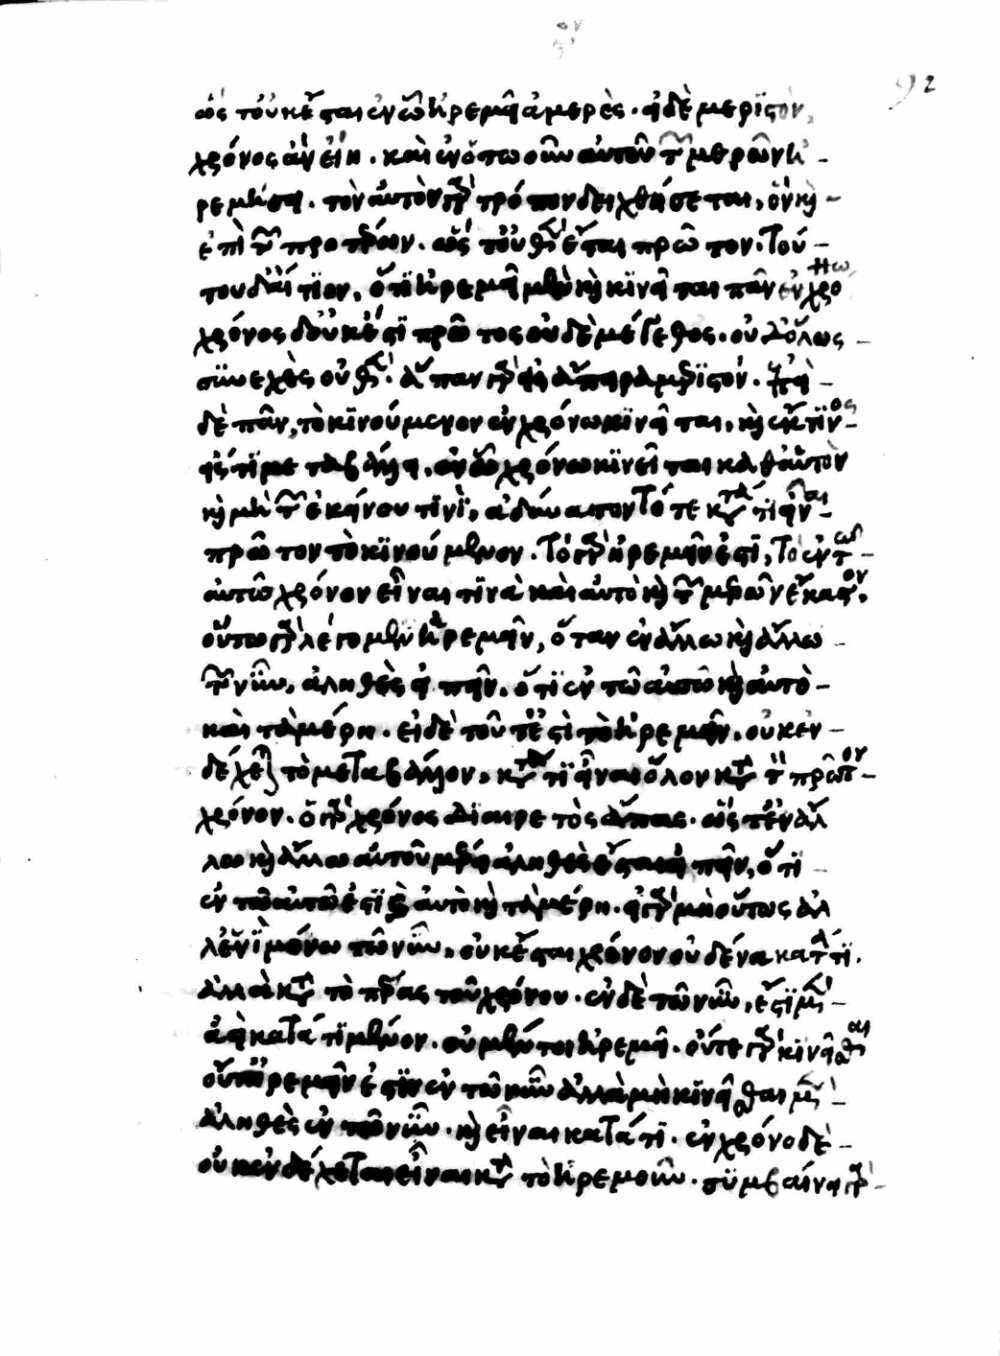 ὥς τ' οὐκ ἔσται ἐν ᾧ ἠρεμεῖ ἀμερές· εἰ δὲ μεριστὸν,
χρόνος ἂν εἴη· καὶ ἐν ὅτῳ οὖν αὐτοῦ τῶν μερῶν ἠ-
ρεμήσει· τὸν αὐτὸν γὰρ τρόπον δειχθήσεται, ὃν καὶ
ἐπὶ τῶν πρότερον· ὥς τ' οὐθὲν ἔσται πρῶτον. Τού-
του δ' αἴτιον, ὅτι ἠρεμεῖ μὲν καὶ κινεῖται πᾶν ἐν χρό
χρόνος δ' οὐκ ἔστι πρῶτος οὐδὲ μέγεθος· οὐδ' ὅλως
συνεχὲς οὐθέν· ἅπαν γὰρ εἰς ἄπειρα μεριστόν. ἐπεὶ
δὲ πᾶν, τὸ κινούμενον ἐν χρόνω κινεῖται, καὶ ἔκ τινος
εἴς τι μεταβάλλει, ἐν ᾧ χρόνω κινεῖται καθ' αὑτὸν
καὶ μὴ τῶν ἐκείνου τινὶ, ἀδύνατον Τότε κατά τι εἶναι
πρῶτον τὸ κινούμενον. Τὸ γὰρ ἠρεμεῖν ἐστι, Τὸ ἐν τῶ
αὐτῶ χρόνον εἶναι τινὰ καὶ αὐτὸ καὶ τῶν μερῶν ἕκαστον.
οὕτω γὰρ λέγομεν ἠρεμεῖν, ὅταν ἐν ἄλλω καὶ ἄλλω
τῶν νῦν, ἀληθὲς εἰπεῖν. ὅτι ἐν τῶ αὐτῶ καὶ αὐτὸ
καὶ τὰ μέρη. εἰ δὲ τοῦτ' ἐστὶ τὸ ἠρεμεῖν, οὐκ ἐν-
δέχεται τὸ μεταβάλλον, κατά τι εἶναι ὅλον κατὰ τὸν πρῶτον
χρόνον. ὁ γὰρ χρόνος διαιρετὸς ἅπας. ὥς τ' ἐν ἄλ
λω καὶ ἄλλω αὐτοῦ μέρει ἀληθὲς ἔσται εἰπεῖν, ὅτι
ἐν τῶ αὐτῶ ἐστι καὶ αὐτὸ καὶ τὰ μέρη. εἰ γὰρ μὴ οὕτως ἀλ
λ' ἐν ἑνὶ μόνω τῶ νῦν, οὐκ ἔσται χρόνον οὐδένα κατά τι.
ἀλλὰ κατὰ τὸ πέρας τοῦ χρόνου. ἐν δὲ τῶ νῦν, ἔστι μὲν
ἀεὶ κατά τι μένον. οὐ μέντοι ἠρεμεῖ. οὔτε γὰρ κινεῖσθαι
οὔτ' ἠρεμεῖν ἔστιν ἐν τῶ νῦν ἀλλὰ μὴ κινεῖσθαι μὲν
ἀληθὲς ἐν τῶ νῦν. καὶ εἶναι κατά τι. ἐν χρόνο δὲ
οὐκ ἐνδέχεται εἶναι κατὰ τὸ ἠρεμοῦν. συμβαίνει γὰρ